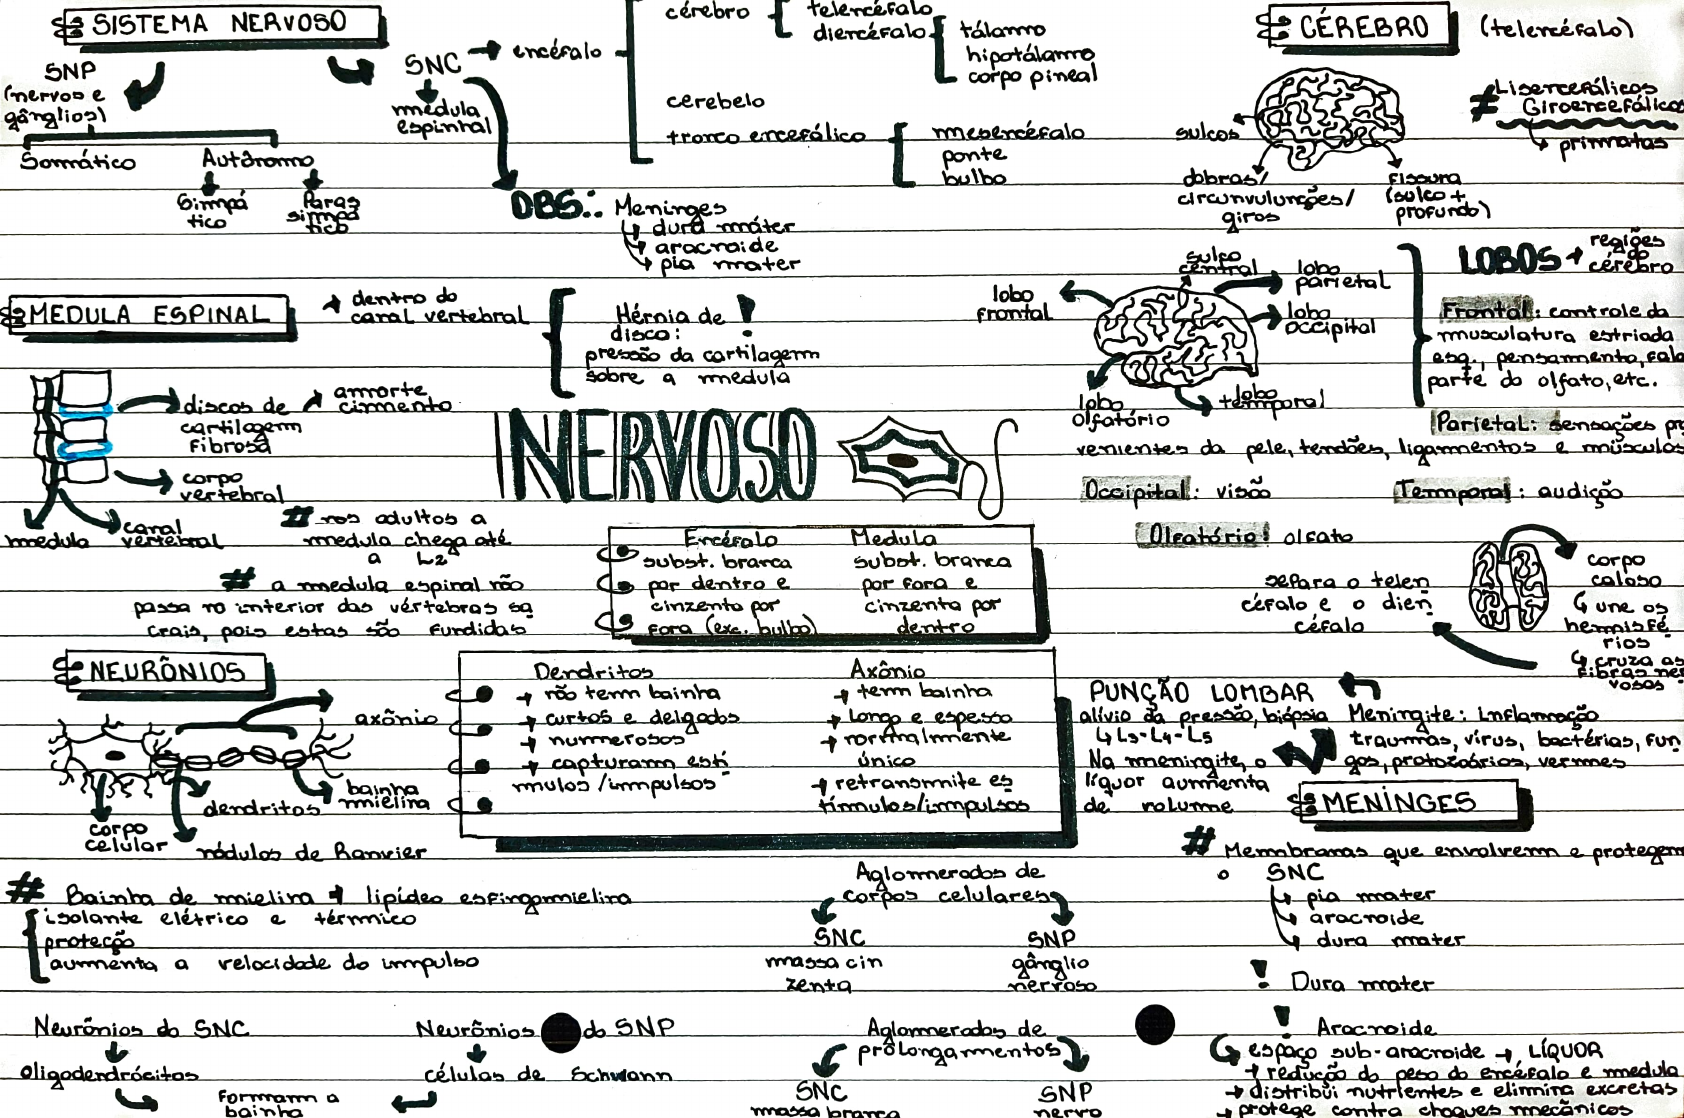 SISTEMA NERVOSO
SNP
(nervos e
gânglios)
Somático
Autônomo
Simpá
tico
Paras
simpá
tico
SNC → encéfalo
medula
espinhal
cérebro
telencéfalo
diencéfalo
tálamo
hipotálamo
corpo pineal
cerebelo
tronco encefálico
mesencéfalo
ponte
bulbo
OBS.: Meninges
dura máter
aracnoide
pia mater
CÉREBRO (telencéfalo)
sulcos
dobras/
circunvulunções/
giros
fissura
(sulco +
profundo)
# Lisencefálicos
Giroencefálicos
primatas
MEDULA ESPINAL
→ dentro do
canal vertebral
Hérnia de
disco:
pressão da cartilagem
sobre a medula
!
discos de
cartilagem
fibrosa
amorte
cimento
corpo
vertebral
medula
canal
vertebral
# nos adultos a
medula chega até
a L2
# a medula espinal não
passa no interior das vértebras sa
crais, pois estas são fundidas
NERVOSO
Encéfalo
subst. branca
por dentro e
cinzenta por
fora (exc. bulbo)
Medula
subst. branca
por fora e
cinzenta por
dentro
sulco
central
lobo
frontal
lobo
parietal
lobo
occipital
lobo
olfatório
lobo
temporal
LOBOS → regiões
do
cérebro
Frontal: controle da
musculatura estriada
esq., pensamento, fala
parte do olfato, etc.
Parietal: sensações pro
venientes da pele, tendões, ligamentos e músculos
Occipital: visão
Temporal: audição
Olfatório: olfato
separa o telen
céfalo e o dien
céfalo
corpo
caloso
↳ une os
hemisfé
rios
↳ cruza as
fibras ner
vosas
NEURÔNIOS
axônio
bainha
mielina
dendritos
corpo
celular
nódulos de Ranvier
Dendritos
→ não tem bainha
→ curtos e delgados
→ numerosos
→ capturam estí
mulos/impulsos
Axônio
→ tem bainha
→ longo e espesso
→ normalmente
único
→ retransmite es
tímulos/impulsos
PUNÇÃO LOMBAR
alívio da pressão, biópsia
↳ L3-L4-L5
Na meningite, o
líquor aumenta
de volume
Meningite: inflamação
traumas, vírus, bactérias, fun
gos, protozoários, vermes
MENINGES
# Membranas que envolvem e protegem
o SNC
→ pia mater
→ aracnoide
→ dura mater
! Dura mater
! Aracnoide
espaço sub-aracnoide → LÍQUOR
→ redução do peso do encéfalo e medula
→ distribui nutrientes e elimina excretas
→ protege contra choques mecânicos
# Bainha de mielina → lipídeo esfingomielina
isolante elétrico e térmico
proteção
aumenta a velocidade do impulso
Neurônios do SNC
oligodendrócitos
Neurônios do SNP
células de Schwann
Formam a
bainha
Aglomerados de
corpos celulares
SNC
massa cin
zenta
SNP
gânglio
nervoso
Aglomerados de
prolongamentos
SNC
massa branca
SNP
nervo